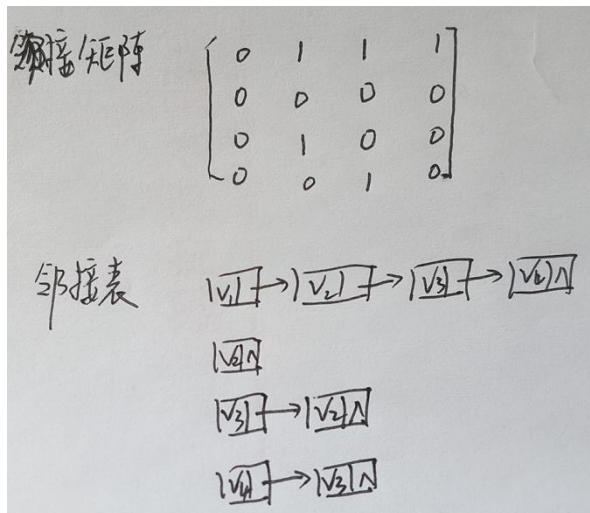 邻接矩阵
0 1 1 1
0 0 0 0
0 1 0 0
0 0 1 0
邻接表
V1 → V2 → V3 → V4 Λ
V2 Λ
V3 → V2 Λ
V4 → V3 Λ